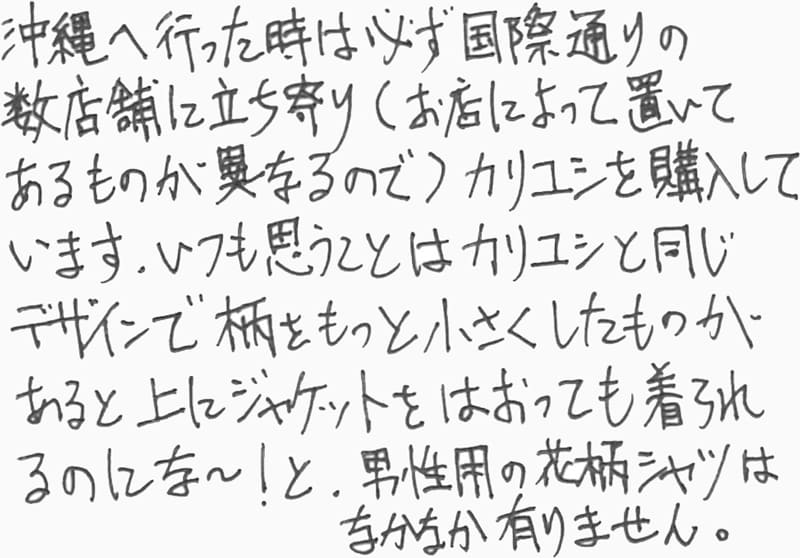 沖縄へ行った時は必ず国際通りの
数店舗に立ち寄り(お店によって置いて
あるものが異なるので)カリユシを購入して
います.いつも思うことはカリユシと同じ
デザインで柄をもっと小さくしたものが
あると上にジャケットをはおっても着られ
るのにな～!と.男性用の花柄シャツは
なかなか有りません。